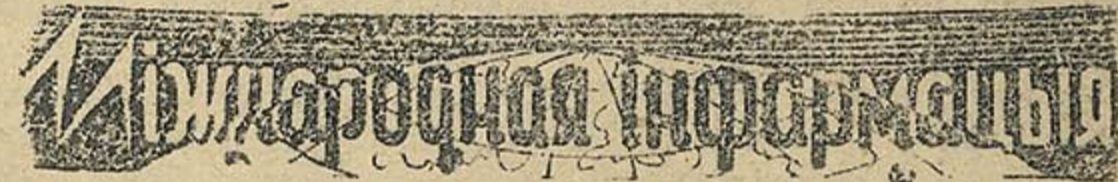 Міжнародная інфармацыя